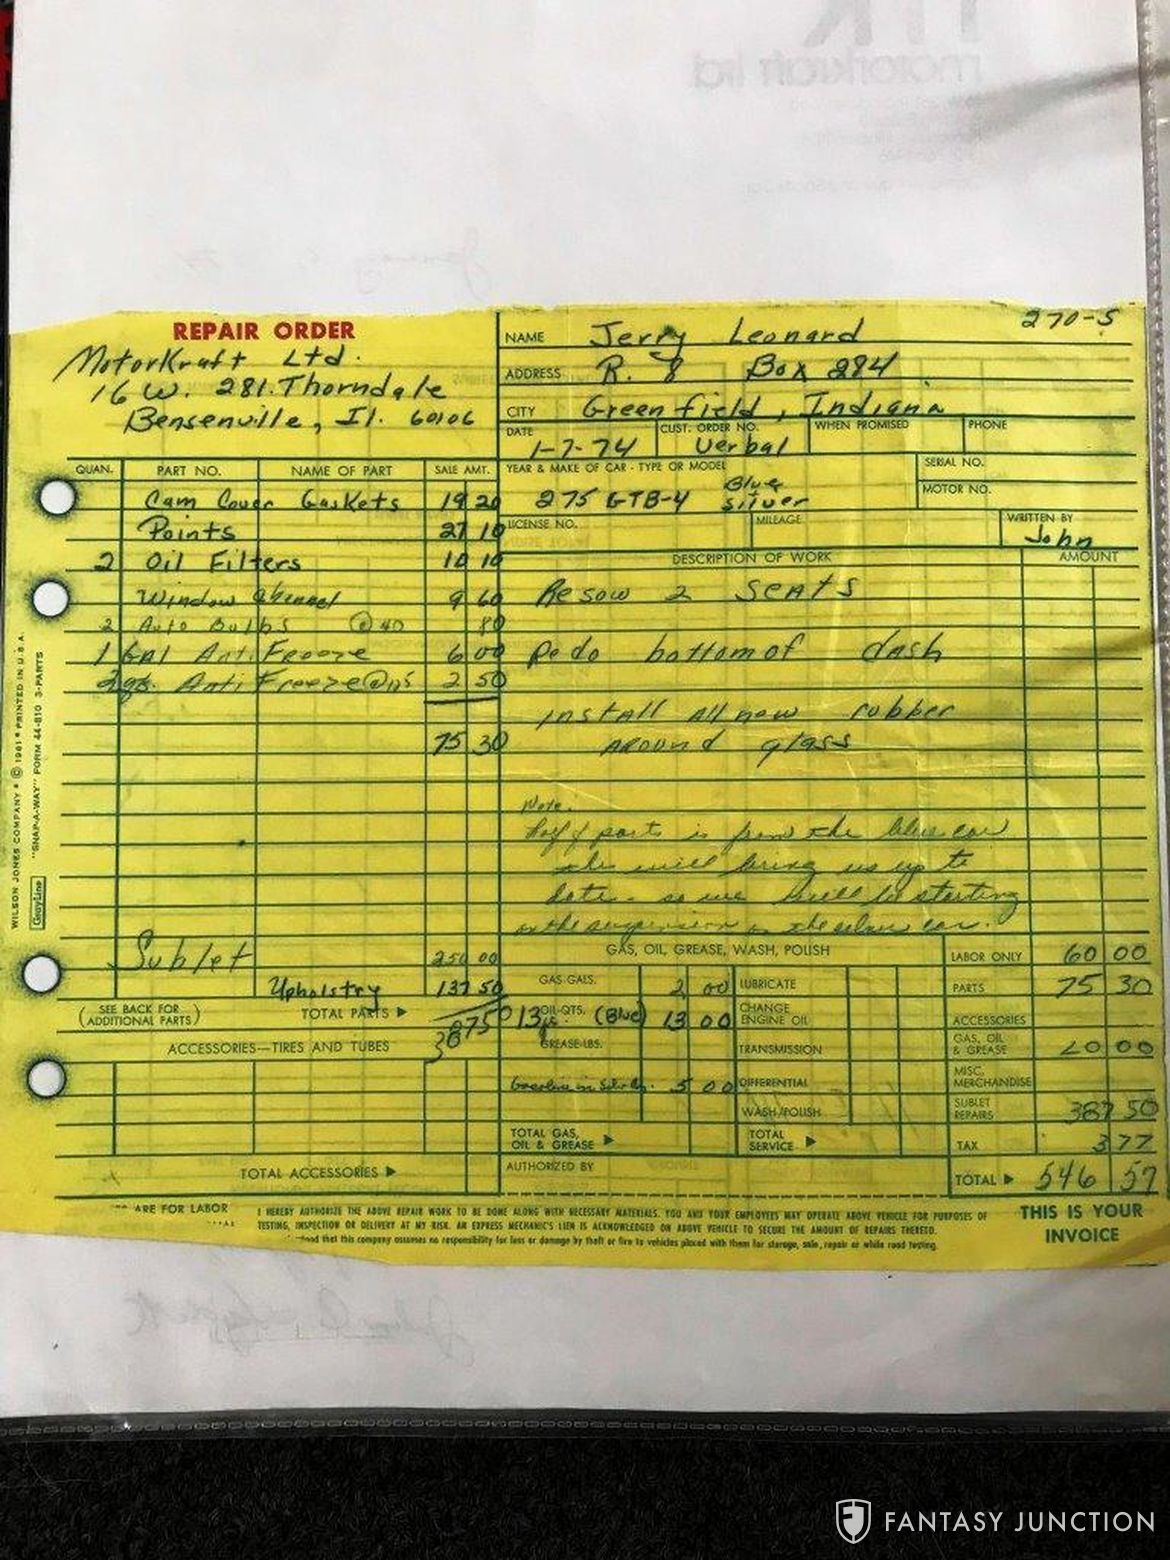 motorkraft ltd
270-S
REPAIR ORDER
MotorKraft Ltd.
16 W. 281. Thorndale
Bensenville, Il. 60106
NAME Jerry Leonard
ADDRESS R. 8 Box 284
CITY Greenfield, Indiana
DATE 1-7-74 CUST. ORDER NO. Verbal WHEN PROMISED PHONE
YEAR & MAKE OF CAR - TYPE OR MODEL 275 GTB-4 Blue Silver SERIAL NO.
MOTOR NO.
LICENSE NO. MILEAGE WRITTEN BY John
QUAN. PART NO. NAME OF PART SALE AMT.
Cam Cover Gaskets 19 20
Points 27 10
2 Oil Filters 10 10
Window Channel 9 60
2 Auto Bulbs @ 40 80
1 Gal Anti Freeze 6 00
2 qts. Anti Freeze @ 125 2 50
75 30
Sublet 250 00
Upholstry 137 50
(SEE BACK FOR ADDITIONAL PARTS) TOTAL PARTS 387 50
ACCESSORIES—TIRES AND TUBES
TOTAL ACCESSORIES
DESCRIPTION OF WORK AMOUNT
Resow 2 seats
Redo bottom of dash
install all new rubber
around glass
Note.
half of parts is from the blue car
will bring us up to
date - so we will be starting
on the suspension on the silver car.
GAS, OIL, GREASE, WASH, POLISH
GAS-GALS. 2 00
13 qts. OIL-QTS. (Blue) 13 00
GREASE-LBS.
Gasoline in Silver 5 00
TOTAL GAS, OIL & GREASE
LUBRICATE
CHANGE ENGINE OIL
TRANSMISSION
DIFFERENTIAL
WASH/POLISH
TOTAL SERVICE
AUTHORIZED BY
LABOR ONLY 60 00
PARTS 75 30
ACCESSORIES
GAS, OIL & GREASE 20 00
MISC. MERCHANDISE
SUBLET REPAIRS 387 50
TAX 3 77
TOTAL 546 57
THIS IS YOUR
INVOICE
ARE FOR LABOR
I HEREBY AUTHORIZE THE ABOVE REPAIR WORK TO BE DONE ALONG WITH NECESSARY MATERIALS. YOU AND YOUR EMPLOYEES MAY OPERATE ABOVE VEHICLE FOR PURPOSES OF
TESTING, INSPECTION OR DELIVERY AT MY RISK. AN EXPRESS MECHANIC'S LIEN IS ACKNOWLEDGED ON ABOVE VEHICLE TO SECURE THE AMOUNT OF REPAIRS THERETO.
that this company assumes no responsibility for loss or damage by theft or fire to vehicles placed with them for storage, sale, repair or while road testing.
WILSON JONES COMPANY • © 1961 • PRINTED IN U.S.A.
GrayLine "SNAP-A-WAY" FORM 44-810 3-PARTS
FANTASY JUNCTION